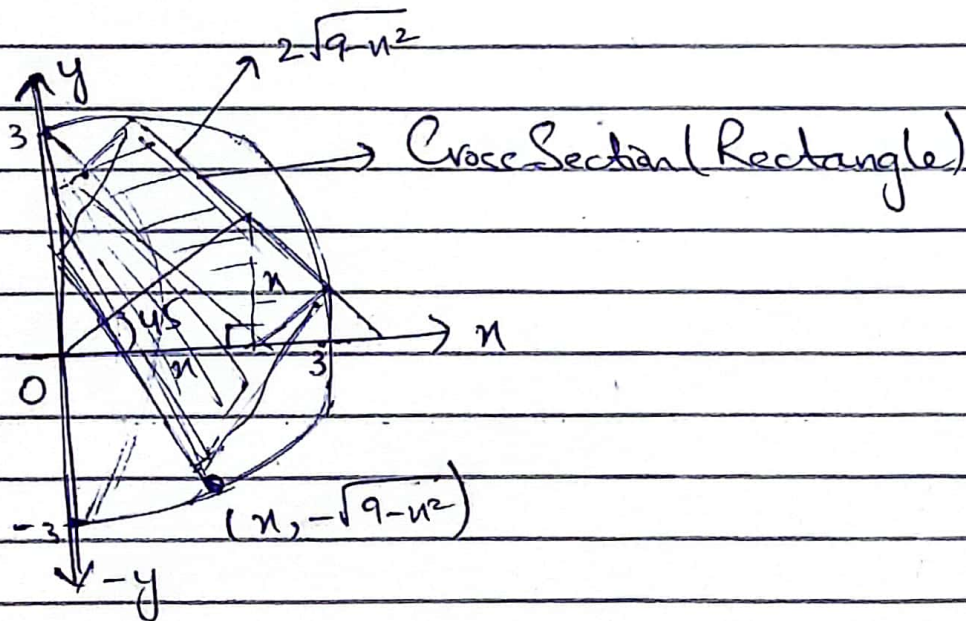 2√9-x²
y
3
Cross Section (Rectangle)
x
45
x
3
x
0
(x, -√9-x²)
-3
-y